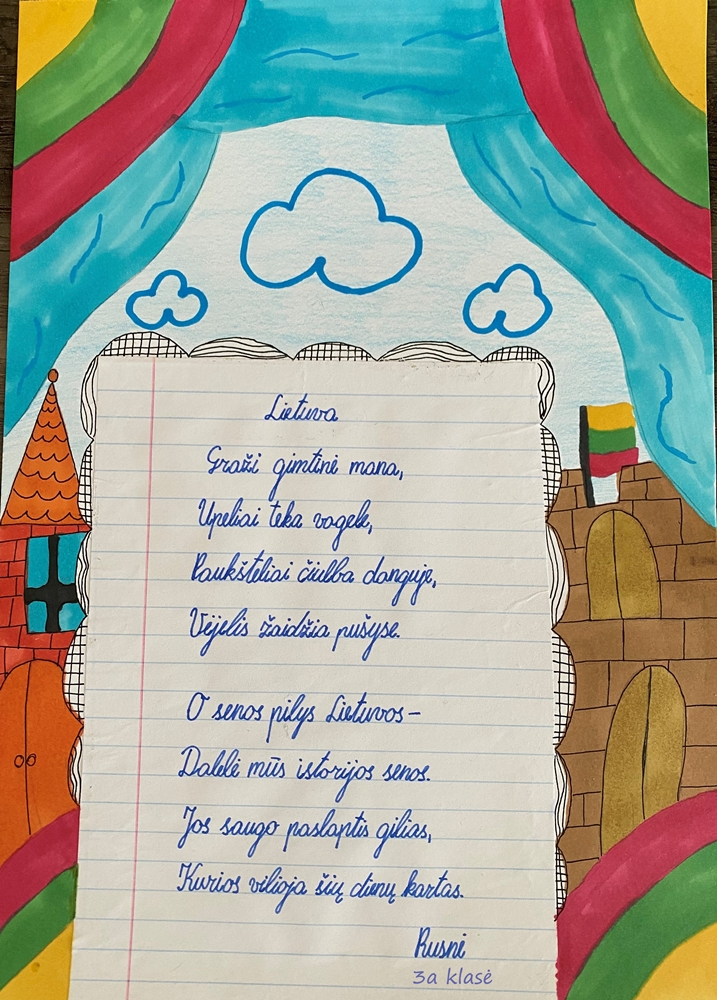 Lietuva
Graži gimtinė mana,
Upeliai teka vagele,
Paukšteliai čiulba danguje,
Vėjelis žaidžia pušyse.
O senos pilys Lietuvos-
Dalelė mūs istorijos senos.
Jos saugo paslaptis gilias,
Kurios vilioja šių dienų kartas.
Rusnė
3a klasė